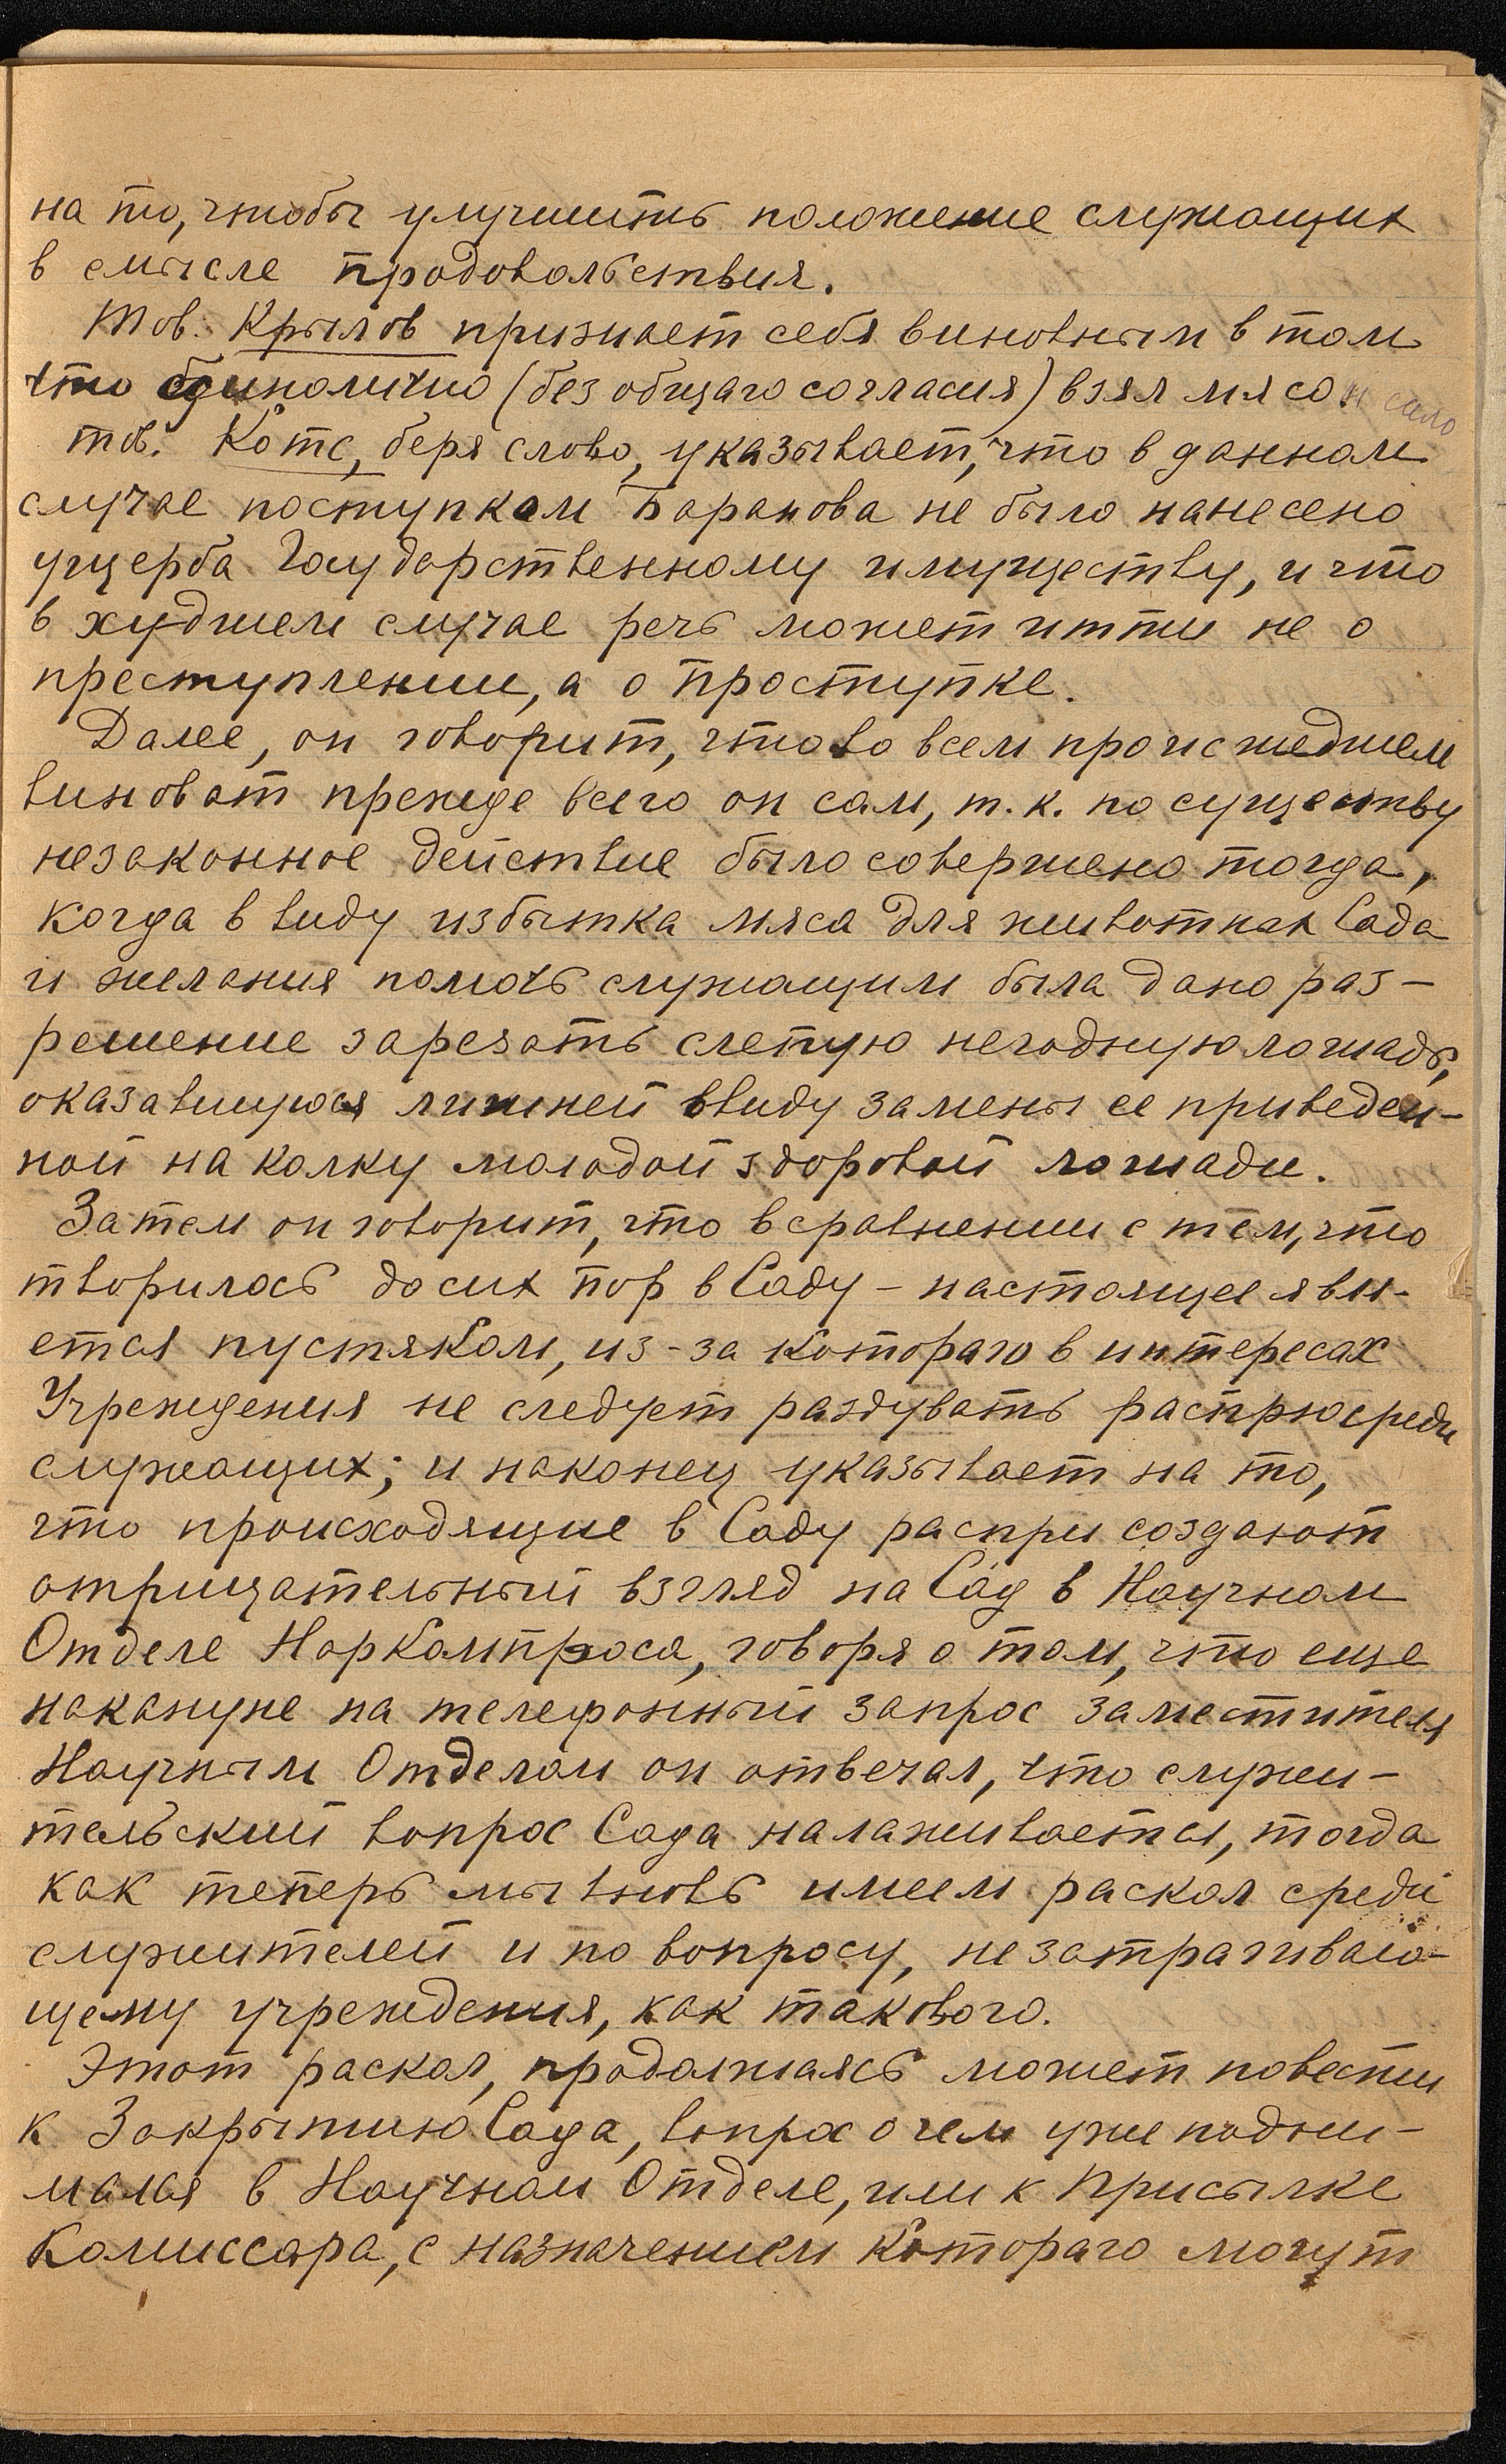 на то, чтобы улучшить положение служащих
в смысле продовольствия.
Тов. Крылов признает себя виновным в том
что единолично (без общаго согласия) взял мясо и сало
тов. Котс, беря слово, указывает, что в данном
случае поступком Баранова не было нанесено
ущерба Государственному имуществу, и что
в худшем случае речь может итти не о
преступлении, а о проступке.
Далее, он говорит, что во всем происшедшем
виноват прежде всего он сам, т. к. по существу
незаконное действие было совершено тогда,
когда в виду избытка мяса для животных Сада
и желания помочь служащим была дано раз-
решение зарезать слепую негодную лошадь,
оказавшуюся лишней ввиду замены ее приведен-
ной на колку молодой здоровой лошади.
Затем он говорит, что в сравнении с тем, что
творилось до сих пор в Саду - настоящее явл-
ется пустяком, из-за котораго в интересах
Учреждения не следует раздувать распрю среди
служащих; и наконец указывает на то,
что происходящие в Саду распри создают
отрицательный взгляд на Сад в Научном
Отделе Наркомпроса, говоря о том, что еще
накануне на телефонный запрос заместителя
Научным Отделом он отвечал, что служи-
тельский вопрос Сада налаживается, тогда
как теперь мы вновь имеем раскол среди
служителей и по вопросу, не затрагиваю-
щему учреждения, как такового.
Этот раскол, продолжаясь может повести
к Закрытию Сада, вопрос о чем уже подни-
мался в Научном Отделе, или к присылке
Комиссара, с назначением котораго могут